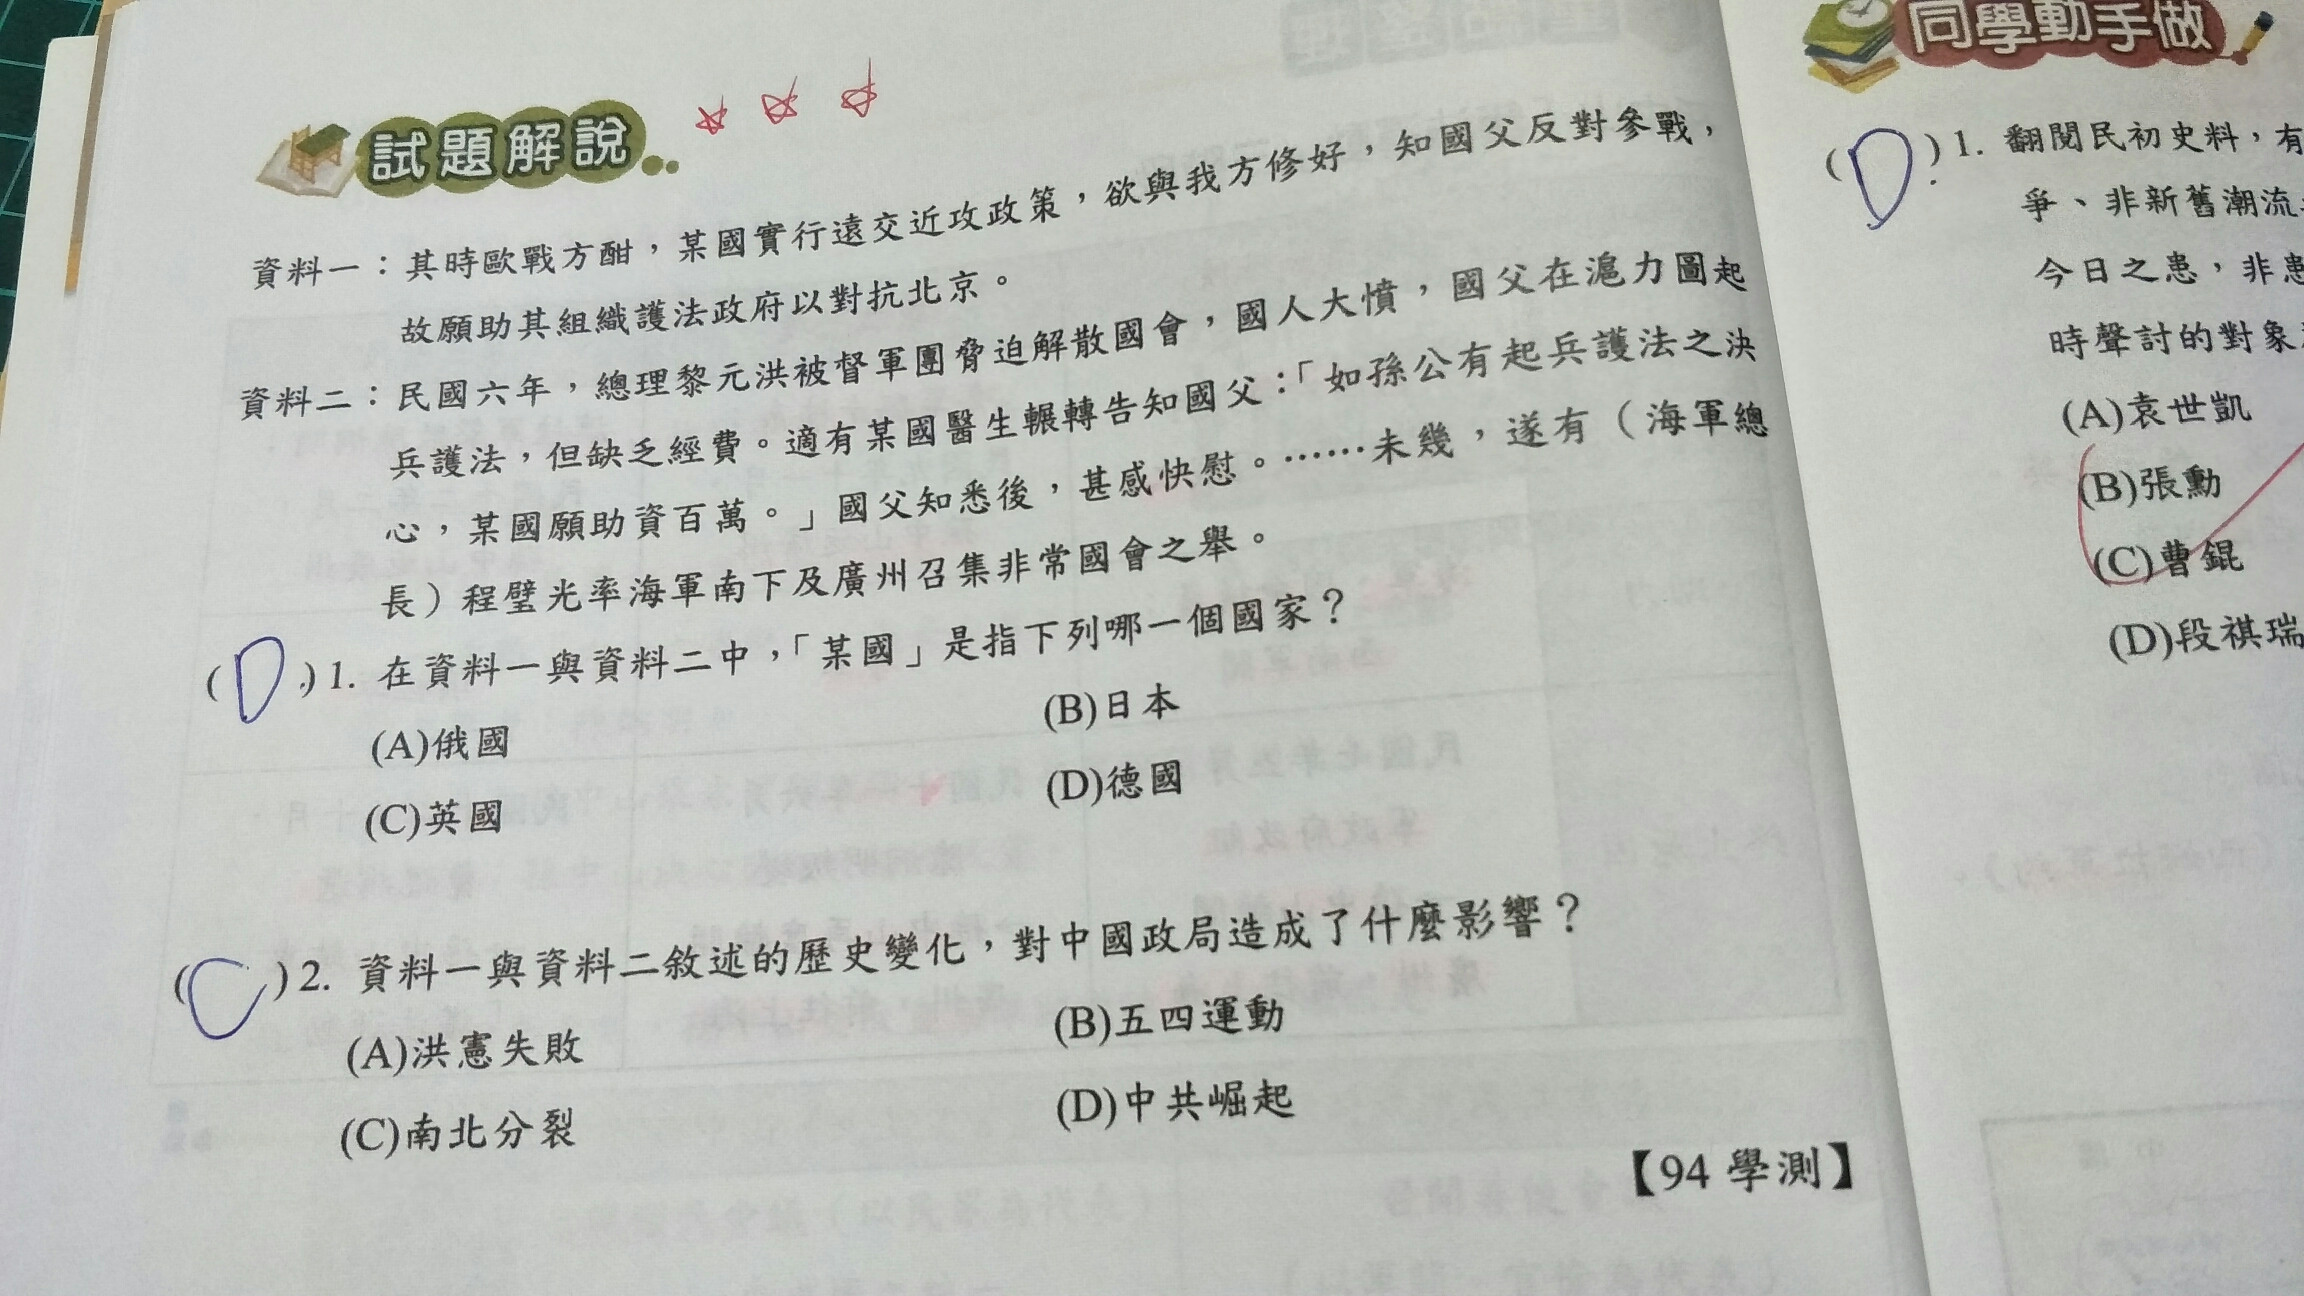 試題解說
資料一：其時歐戰方酣，某國實行遠交近攻政策，欲與我方修好，知國父反對參戰，
故願助其組織護法政府以對抗北京。
資料二：民國六年，總理黎元洪被督軍團脅迫解散國會，國人大憤，國父在滬力圖起
兵護法，但缺乏經費。適有某國醫生輾轉告知國父：「如孫公有起兵護法之決
心，某國願助資百萬。」國父知悉後，甚感快慰。……未幾，遂有（海軍總
長）程璧光率海軍南下及廣州召集非常國會之舉。
(D)1. 在資料一與資料二中，「某國」是指下列哪一個國家？
(A)俄國 (B)日本
(C)英國 (D)德國
(C)2. 資料一與資料二敘述的歷史變化，對中國政局造成了什麼影響？
(A)洪憲失敗 (B)五四運動
(C)南北分裂 (D)中共崛起
【94 學測】
同學動手做
(D)1. 翻閱民初史料，有
爭、非新舊潮流
今日之患，非患
時聲討的對象
(A)袁世凱
(B)張勳
(C)曹錕
(D)段祺瑞